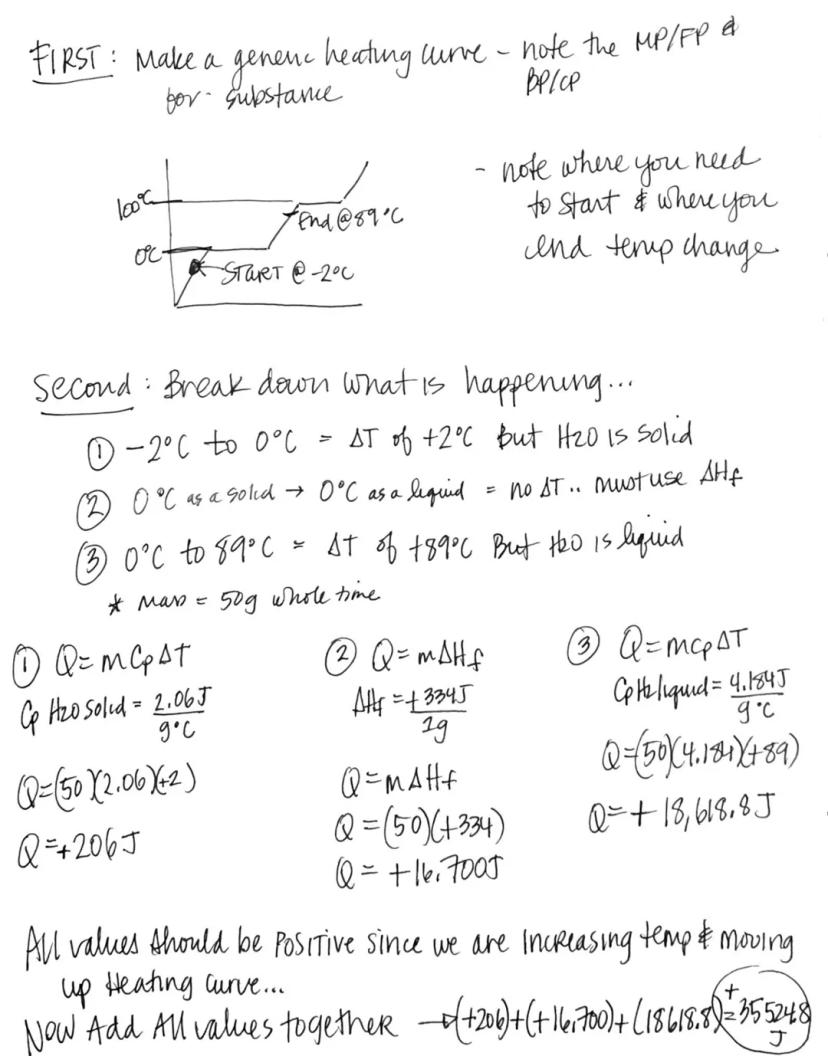 FIRST: Make a generic heating curve - note the MP/FP &
for substance BP/CP
- note where you need
to start & where you
end temp change.
100°C
End @ 89°C
0°C
START @ -2°C
Second: Break down what is happening...
① -2°C to 0°C = ΔT of +2°C But H2O is solid
② 0°C as a solid → 0°C as a liquid = no ΔT.. must use ΔHf
③ 0°C to 89°C = ΔT of +89°C But H2O is liquid
* mass = 50g whole time
① Q=mCpΔT
Cp H2O solid = 2.06J
g°C
Q=(50)(2.06)(+2)
Q=+206J
② Q=mΔHf
ΔHf = +334J
1g
Q=mΔHf
Q=(50)(+334)
Q= +16,700J
③ Q=mcpΔT
Cp H2 liquid = 4.184J
g°C
Q=(50)(4.184)(+89)
Q=+18,618.8J
All values should be POSITIVE since we are increasing temp & moving
up Heating curve...
Now Add All values together → (+206)+(+16,700)+(18618.8)=+35524.8
J